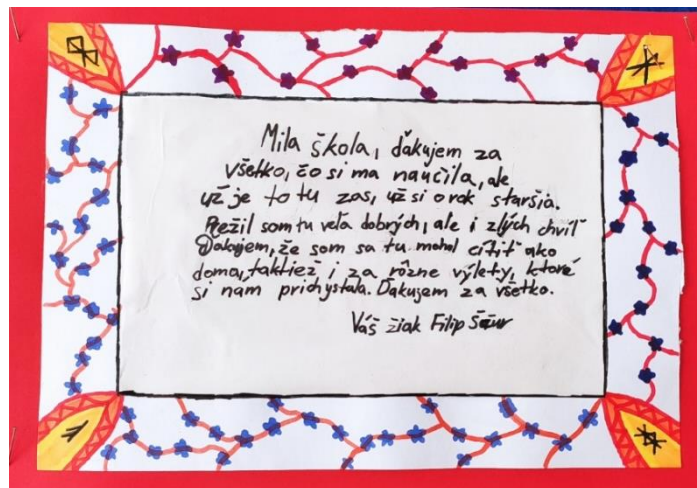 Mila škola, ďakujem za
všetko, čo si ma naučila, ale
už je to tu zas, už si o rok staršia.
Prežil som tu veľa dobrých, ale i zlých chvíľ
Ďakujem, že som sa tu mohol cítiť ako
doma, taktiež i za rôzne výlety, ktoré
si nam prichystala. Ďakujem za všetko.
Váš žiak Filip